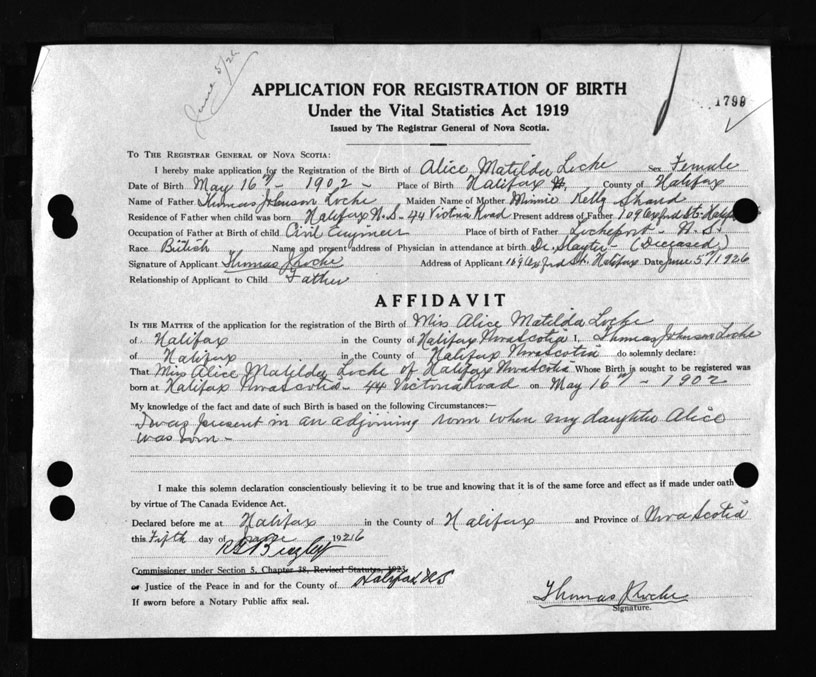 June 5/26
APPLICATION FOR REGISTRATION OF BIRTH
Under the Vital Statistics Act 1919
1799
Issued by The Registrar General of Nova Scotia.
TO THE REGISTRAR GENERAL OF NOVA SCOTIA:
I hereby make application for the Registration of the Birth of Alice Matilda Locke Sex Female
Date of Birth May 16th - 1902 - Place of Birth Halifax County of Halifax
Name of Father Thomas Johnson Locke Maiden Name of Mother Minnie Kelly Shand
Residence of Father when child was born Halifax N.S - 44 Victoria Road Present address of Father 169 Oxford St. Halifax
Occupation of Father at Birth of child Civil Engineer Place of birth of Father Lockeport - N.S.
Race British Name and present address of Physician in attendance at birth Dr. Slayter - (Deceased)
Signature of Applicant Thomas J Locke Address of Applicant 169 Oxford St. Halifax Date June 5th 1926
Relationship of Applicant to Child Father
AFFIDAVIT
IN THE MATTER of the application for the registration of the Birth of Miss Alice Matilda Locke
of Halifax in the County of Halifax Nova Scotia I, Thomas Johnson Locke
of Halifax in the County of Halifax Nova Scotia do solemnly declare:
That Miss Alice Matilda Locke of Halifax Nova Scotia Whose Birth is sought to be registered was
born at Halifax Nova Scotia - 44 Victoria Road on May 16th - 1902
My knowledge of the fact and date of such Birth is based on the following Circumstances:—
I was present in an adjoining room when my daughter Alice
was born -
I make this solemn declaration conscientiously believing it to be true and knowing that it is of the same force and effect as if made under oath
by virtue of The Canada Evidence Act.
Declared before me at Halifax in the County of Halifax and Province of Nova Scotia
this Fifth day of June 1926
Commissioner under Section 5, Chapter 38, Revised Statutes, 1923
or Justice of the Peace in and for the County of Halifax, NS
If sworn before a Notary Public affix seal.
Thomas J Locke
Signature.